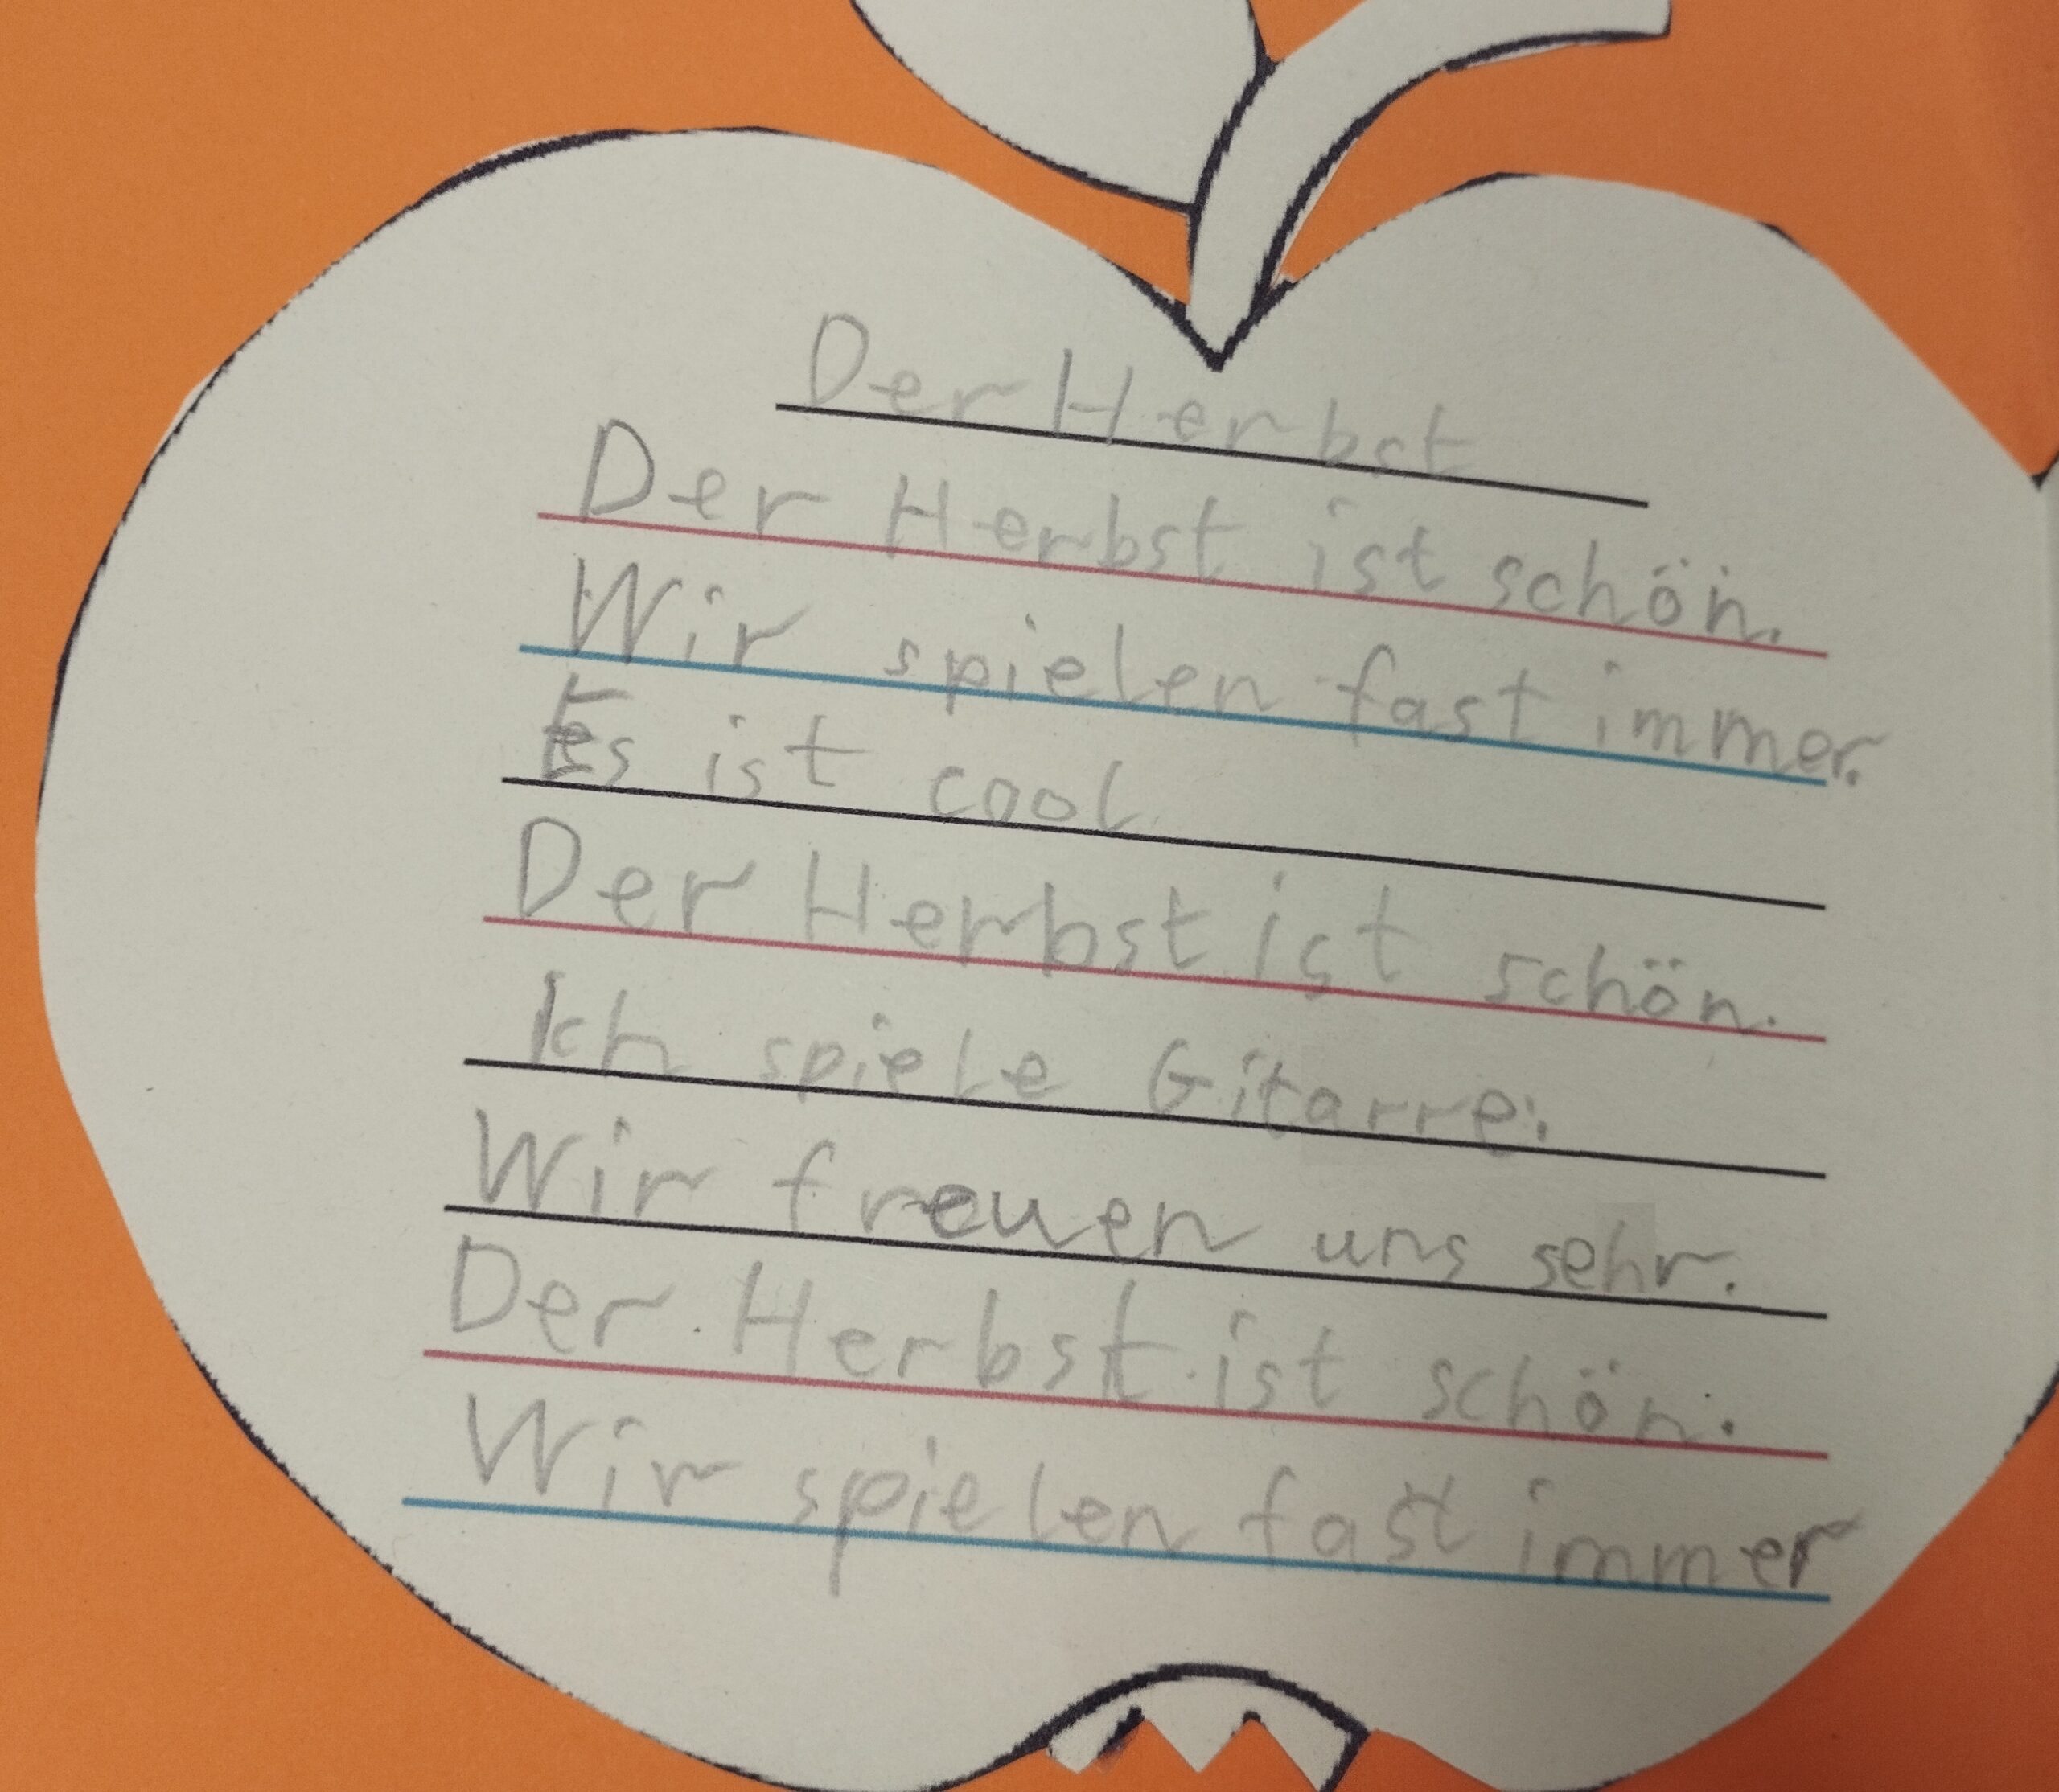 Der Herbst
Der Herbst ist schön.
Wir spielen fast immer.
Es ist cool
Der Herbst ist schön.
Ich spiele Gitarre.
Wir freuen uns sehr.
Der Herbst ist schön.
Wir spielen fast immer